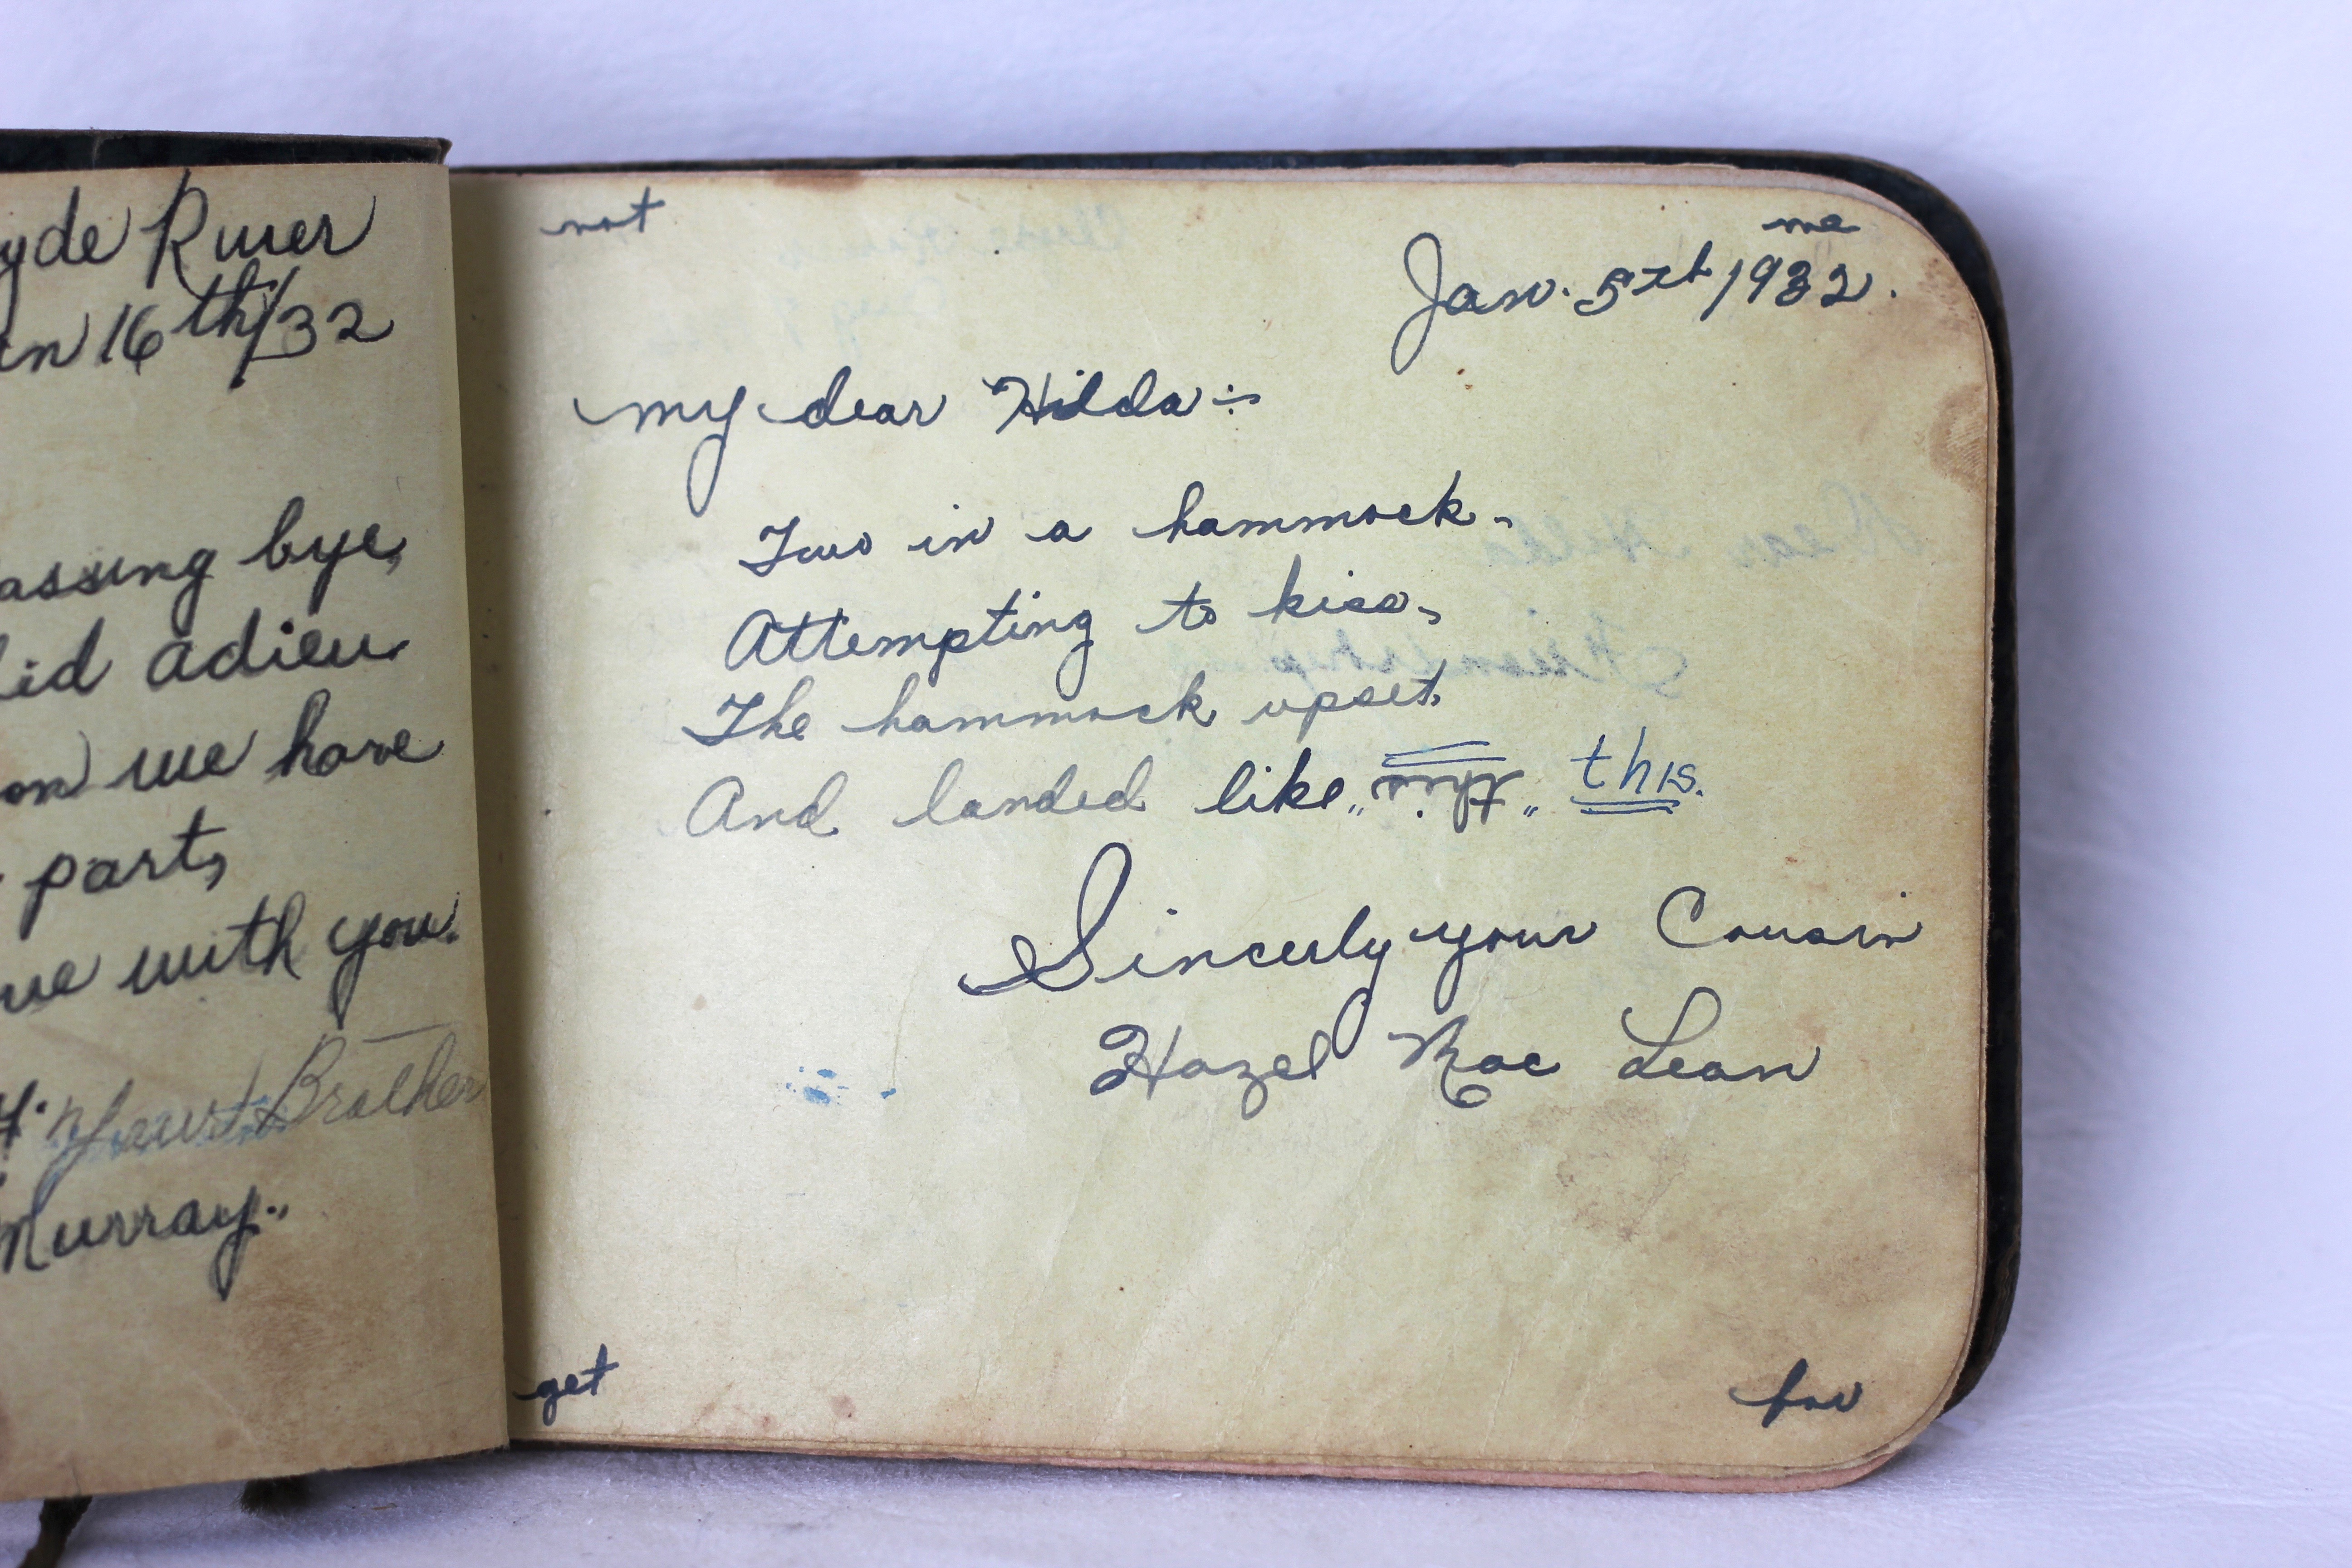 yde River
an 16th/32
assing bye,
id adieu
on we have
part,
ve with you.
Your Brother
Murray.
not
me
Jan. 5th 1932.
My dear Hilda:-
Two in a hammock,
Attempting to kiss,
The hammock upset,
And landed like "this" this.
Sincerly your Cousin
Hazel Mac Lean
get
for